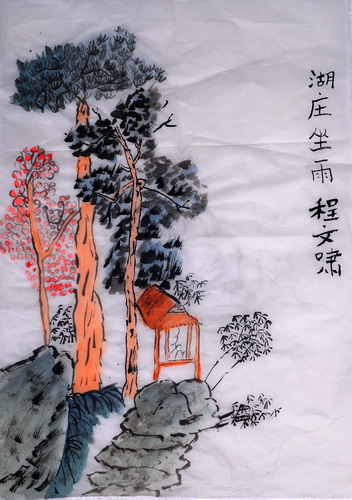 湖庄坐雨 程文啸